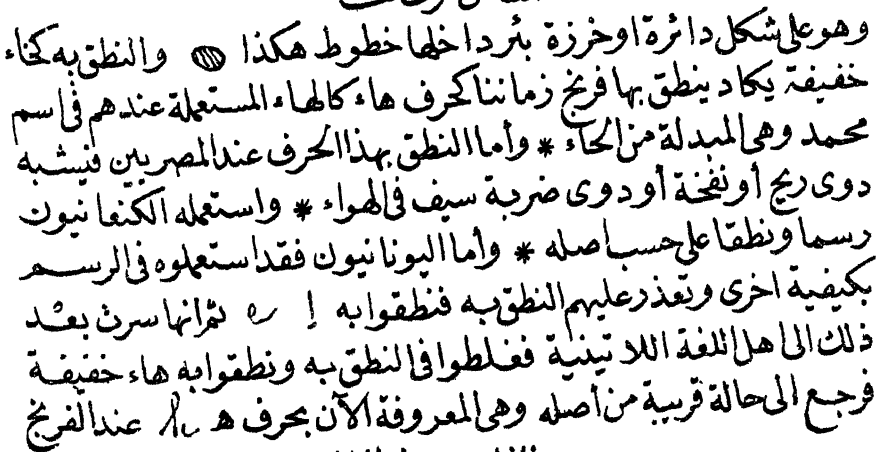 وهو على شكل دائرة اوخرزة بئر داخلها خطوط هكذا والنطق به كخاء
خفيفة يكاد ينطق بها فرنج زماننا كحرف هاء كالهاء المستعملة عندهم فى اسم
محمد وهى المبدلة من الحاء * وأما النطق بهذا الحرف عند المصريين فيشبه
دوى ريح أو نفخة أو دوى ضربة سيف فى الهواء * واستعمله الكنعانيون
رسما ونطقا على حسب اصله * وأما اليونانيون فقد استعملوه فى الرسم
بكيفية اخرى وتعذر عليهم النطق به فنطقوا به إ ثم انها سرت بعد
ذلك الى اهل اللغة اللاتينية فغلطوا فى النطق به ونطقوا به هاء خفيفة
فرجع الى حالة قريبة من أصله وهى المعروفة الآن بحرف ھ h عند الفرنج